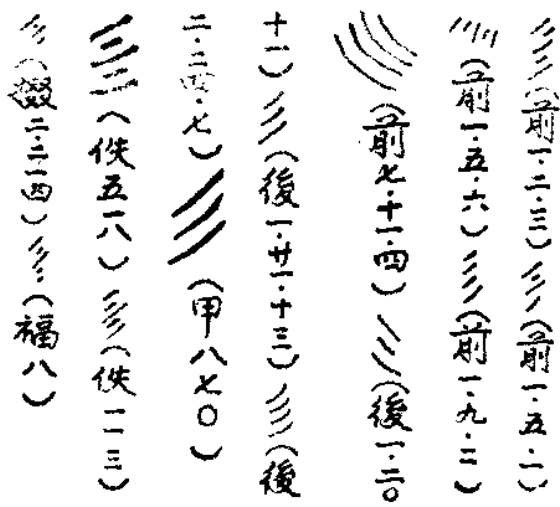 彡(前一·二·三)彡(前一·五·一)
彡(前一·五·六)彡(前一·九·二)
彡(前七·十一·四)彡(後一·二〇
十一)彡(後一·廿一·十三)彡(後
二·二四·七)彡(甲八七〇)
彡(佚五一八)彡(佚一一三)
彡(掇二·二一四)彡(福八)